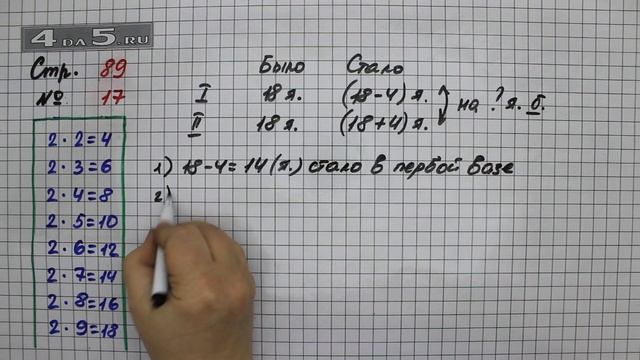 4DA5.RU
Стр. 89
№ 17
Было Стало
I 18 я. (18-4) я.
II 18 я. (18+4) я.
на ? я. б.
1) 18-4=14(я.) стало в первой вазе
2)
2·2=4
2·3=6
2·4=8
2·5=10
2·6=12
2·7=14
2·8=16
2·9=18